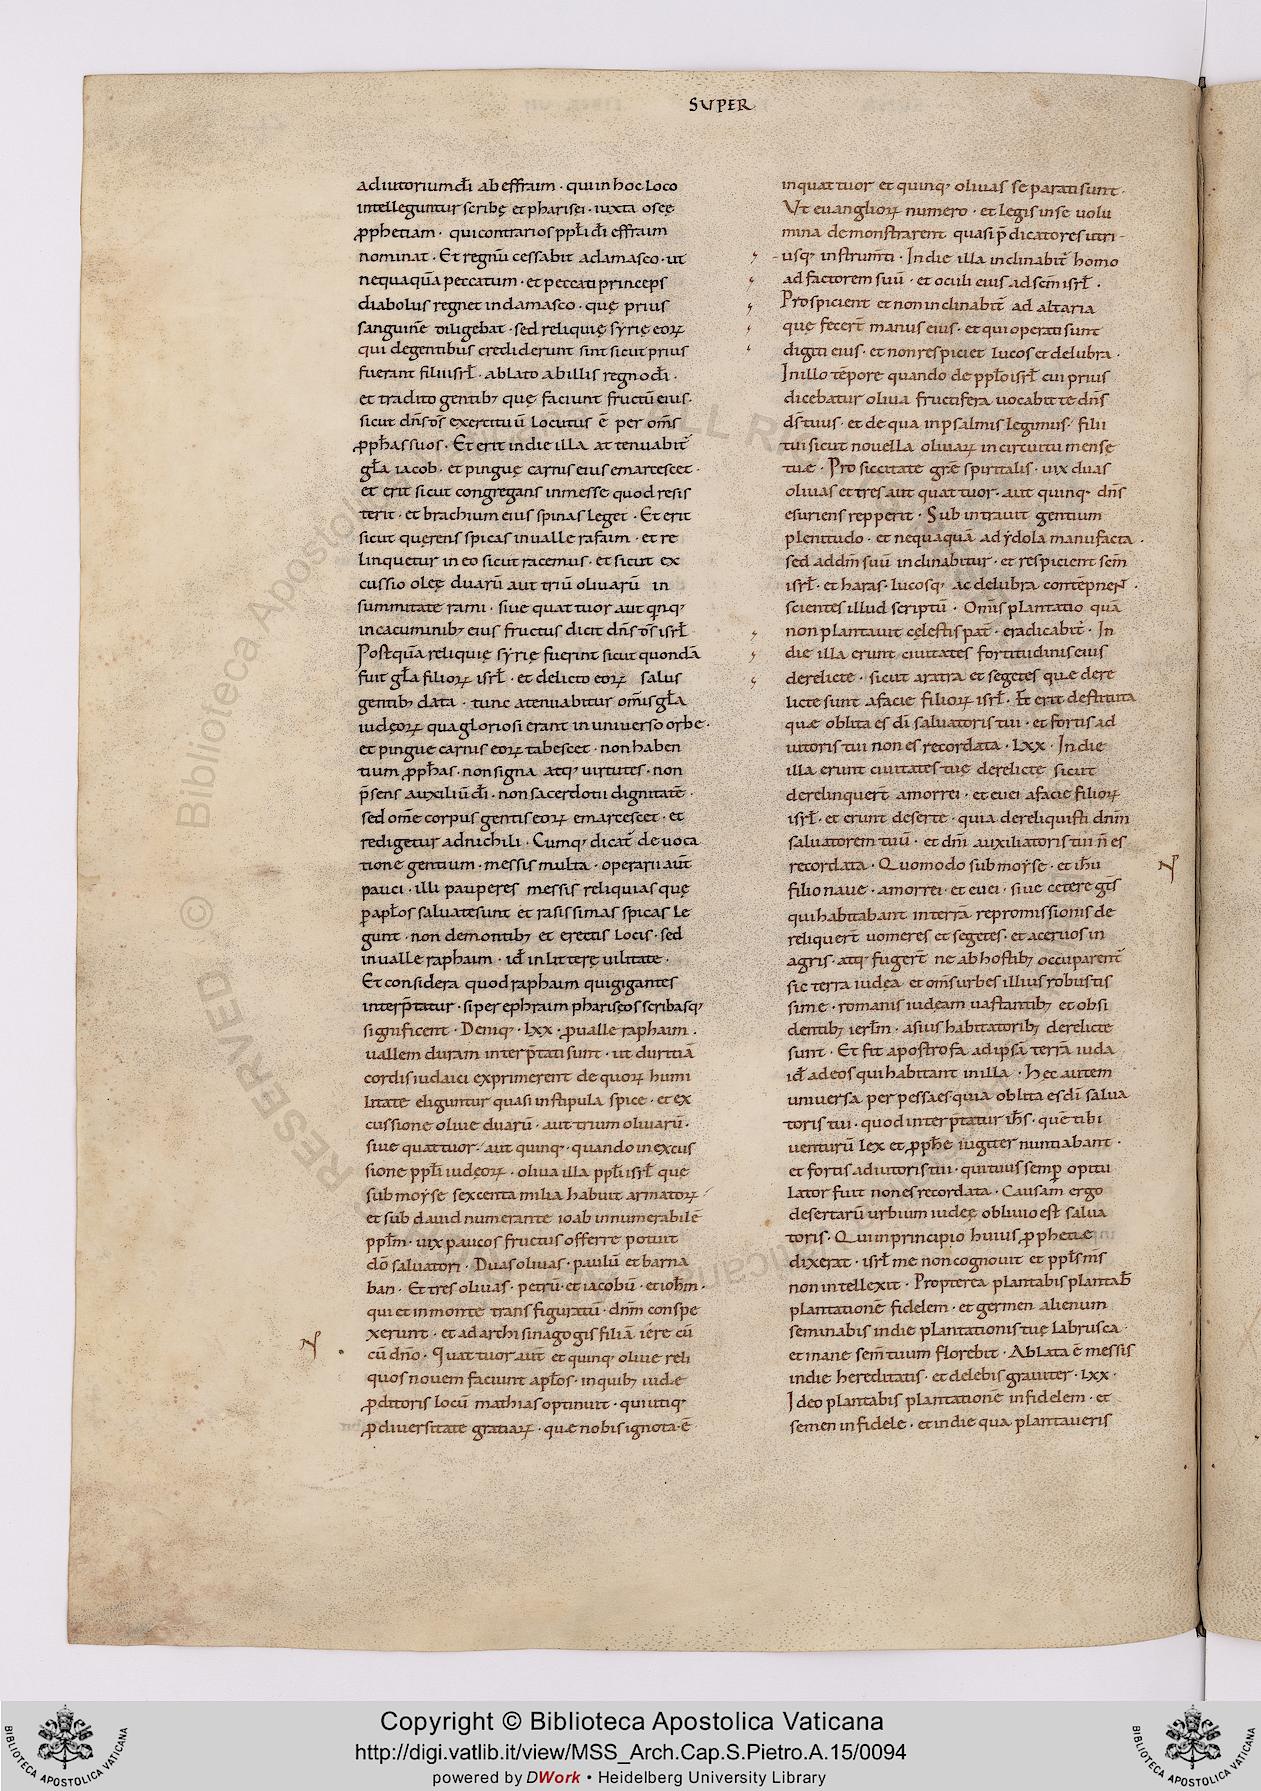 SUPER
adiutorium dī ab effraim · qui in hoc loco
intelleguntur scribę et pharisęi · iuxta osee
ꝓphetiam · qui contrarios ppl̄i dī effraim
nominat · Et regnū cessabit a damasco · ut
nequaquā peccatum · et peccati princeps
diabolus regnet in damasco · quę prius
sanguinē diligebat · sed reliquię syrię eoꝝ
qui de gentibus crediderunt sint sicut prius
fuerant filii isrł · ablato ab illis regno dī ·
et tradito gentibꝫ quę faciunt fructū eius ·
sicut dn̄s om̄s exercituū locutus ē per om̄s
ꝓphas suos · Et erit in die illa attenuabit̄
gła iacob · et pingue carnis eius emarcescet ·
et erit sicut congregans in messe quod resis
terit · et brachium eius spinas leget · Et erit
sicut querens spicas in ualle rafaim · et re
linquetur in eo sicut racemus · et sicut ex
cussio olęę duarū aut triū oliuarū in
summitate rami · siue quattuor aut qnqꝫ
in cacuminibꝫ eius fructus dicit dn̄s ds̄ isrł
Postquā reliquię syrię fuerint sicut quondā
fuit gła filioꝝ isrł · et delicto eoꝝ salus
gentibꝫ data · tunc atenuabitur om̄is gła
iudęoꝝ qua gloriosi erant in uniuerso orbe ·
et pingue carnis eoꝝ tabescet · non haben
tium ꝓphas · non signa atqꝫ uirtutes · non
p̄sens auxiliū dī · non sacerdotii dignitatē ·
sed om̄e corpus gentis eoꝝ emarcescet · et
redigetur ad nichili · Cumqꝫ dicat̄ de uoca
tione gentium · messis multa · operarii aut̄
pauci · illi pauperes messis reliquias quę
p apłos saluatę sunt et rasissimas spicas le
gunt · non de montibꝫ et erectis locis · sed
in ualle raphaim · id̄ in litterę uilitate ·
Et considera quod raphaim qui gigantes
interp̄tatur · si per ephraim phariscos scribasqꝫ
significent · Deniqꝫ · lxx · ꝓ ualle raphaim ·
uallem duram interp̄tati sunt · ut duritiā
cordis iudaici exprimerent de quoꝝ humi
litate eliguntur quasi in stipula spice · et ex
cussione oliue duarū · aut trium oliuarū ·
siue quattuor · aut quinqꝫ · quando in excus
sione ppl̄i iudęoꝝ · oliua illa ppl̄i isrł quę
sub moyse sexcenta milia habuit armatoꝝ
et sub dauid numerante ioab innumerabilē
ppłm · uix paucos fructus offerre potuit
dō saluatori · Duas oliuas · paulū et barna
ban · Et tres oliuas · petrū · et iacobū · et ioh̄m ·
qui et in monte transfiguratū · dn̄m conspe
xerunt · et ad archisinagogis filiā iere cū
cū dn̄o · Quattuor aut̄ et quinqꝫ oliue reli
quos nouem faciunt apłos · in quibꝫ iudę
ꝓditoris locū mathias optinuit · qui utiqꝫ
ꝓ diuersitate gratiaꝝ · quę nobis ignota · ē
in quattuor et quinqꝫ oliuas separati sunt ·
Ut euangelioꝝ numero · et legis in se uolu
mina demonstrarent quasi p̄dicatores utri-
usqꝫ instrum̄ti · In die illa inclinabit̄ homo
ad factorem suū · et oculi eius ad sc̄m isrł ·
Prospicient et non inclinabit̄ ad altaria
quę fecert̄ manus eius · et qui operati sunt
digiti eius · et non respiciet lucos et delubra ·
In illo tēpore quando de ppło isrł cui prius
dicebatur oliua fructifera uocabit te dn̄s
ds̄ tuus · et de qua in psalmis legimus · filii
tui sicut nouella oliuaꝝ in circuitu mensę
tuę · Pro siccitate grę spiritalis · uix duas
oliuas et tres aut quattuor · aut quinqꝫ dn̄s
esuriens repperit · Subintrauit gentium
plenitudo · et nequaquā ad ydola manufacta ·
sed ad dm̄ suū inclinabitur · et respicient sc̄m
isrł · et haras · lucosqꝫ ac delubra contēpnent ·
scientes illud scriptū · Om̄is plantatio quā
non plantauit cęlestis pat̄ · eradicabit̄ · In
die illa erunt ciuitates fortitudinis eius
derelictę · sicut aratra et segetes quę dere
lictę sunt a facie filioꝝ isrł · Et erit destituta
quæ oblita es dī saluatoris tui · et fortis ad
iutoris tui non es recordata · lxx · In die
illa erunt ciuitates tuę derelictę sicut
derelinquert̄ amorrei · et euei a facie filioꝝ
isrł · et erunt desertę · quia dereliquisti dn̄m
saluatorem tuū · et dn̄i auxiliatoris tui n̄ es
recordata · Quomodo sub moyse · et ih̄u
filio naue · amorrei · et euei · siue ceterę gt̄s
qui habitabant in terrā repromissionis de
reliquert̄ uomeres et segetes · et aceruos in
agris · atqꝫ fugert̄ ne ab hostibꝫ occuparent̄
sic terra iudęa et om̄s urbes illius robustis
simę · romanis iudęam uastantibꝫ et obsi
dentibꝫ ierłm · a siuis habitatoribꝫ derelictę
sunt · Et fit apostrofa ad ipsā terrā iuda
id̄ ad eos qui habitant in illa · Hęc autem
uniuersa per pessa es quia oblita es dī salua
toris tui · quod interp̄tatur ih̄s · quē tibi
uenturū lex et ꝓphę iugiter nuntiabant ·
et fortis adiutoris tui · qui tuus semꝑ opitu
lator fuit non es recordata · Causam ergo
desertarū urbium iudęę obliuio est salua
toris · Qui in principio huius ꝓphetię
dixerat · isrł me non cognouit et ppłs ms̄
non intellexit · Propterea plantabis plantab̄
plantationē fidelem · et germen alienum
seminabis in die plantationis tuę labrusca ·
et mane sem̄ tuum florebit · Ablata ē messis
in die hereditatis · et delebis grauiter · lxx ·
Ideo plantabis plantationē infidelem · et
semen infidele · et in die qua plantaueris
Copyright © Biblioteca Apostolica Vaticana
http://digi.vatlib.it/view/MSS_Arch.Cap.S.Pietro.A.15/0094
powered by DWork • Heidelberg University Library